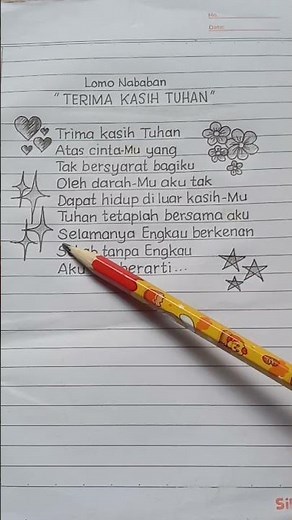 No.
Date.
Lomo Nababan
"TERIMA KASIH TUHAN"
Trima kasih Tuhan
Atas cinta-Mu yang
Tak bersyarat bagiku
Oleh darah-Mu aku tak
Dapat hidup di luar kasih-Mu
Tuhan tetaplah bersama aku
Selamanya Engkau berkenan
tanpa Engkau
Aku berarti...